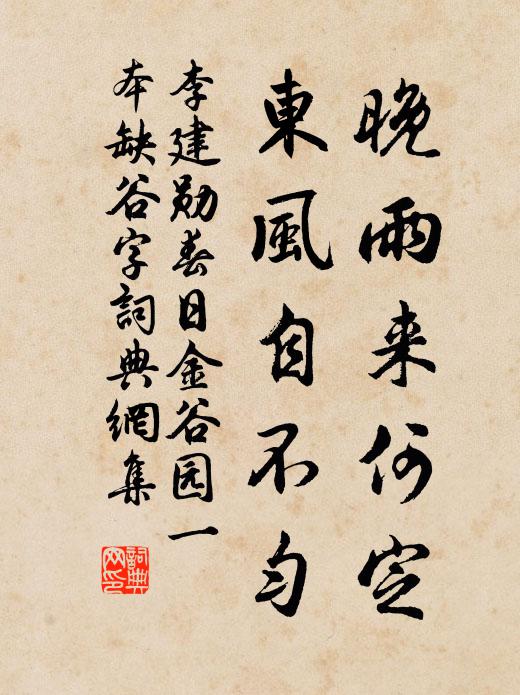 晚雨来何定
東風自不勻
李建勋春日金谷园一
本缺谷字詞典網集
詞典
网印